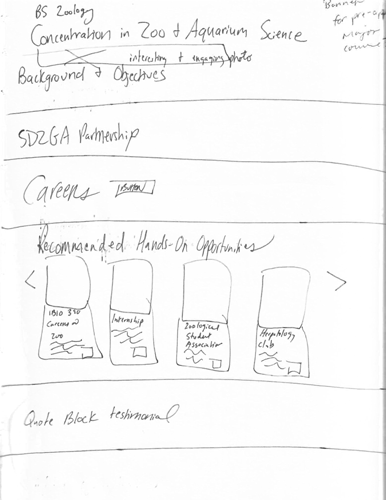 BS Zoology
Concentration in Zoo & Aquarium Science
interesting & engaging photo
Background & Objectives
Banner
for pre-
major
course
SDZGA Partnership
Careers
Button
Recommended Hands-On Opportunities
<
>
IBIO 350
Careers
Zoo
Internship
Zoological
Student
Association
Herpetology
Club
Quote Block testimonial